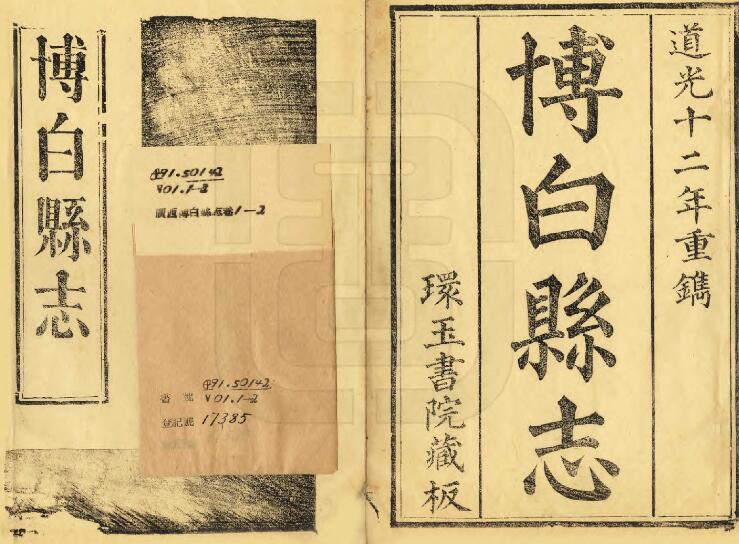 道光十二年重鐫
博白縣志
環玉書院藏板
博白縣志
491.50142
V01.1-2
廣西博白縣志卷1—2
書號 491.50142
V01.1-2
登記號 17385